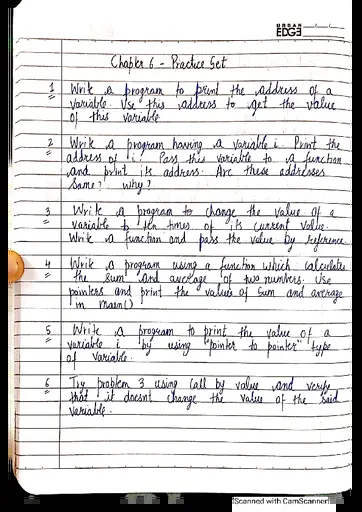 URBAN
EDGE
Chapter 6 - Practice Set
1 Write a program to print the address of a
variable. Use this address to get the value
of this variable
2 Write a program having a variable i. Print the
address of i. Pass this variable to a function
and print its address. Are these addresses
same? why?
3 Write a program to change the value of a
variable to ten times of its current value.
Write a function and pass the value by reference.
4 Write a program using a function which calculates
the sum and average of two numbers. Use
pointers and print the values of sum and average
in main()
5 Write a program to print the value of a
variable i by using "pointer to pointer" type
of variable.
6 Try problem 3 using call by value and verify
that it doesnt change the value of the said
variable.
Scanned with CamScanner